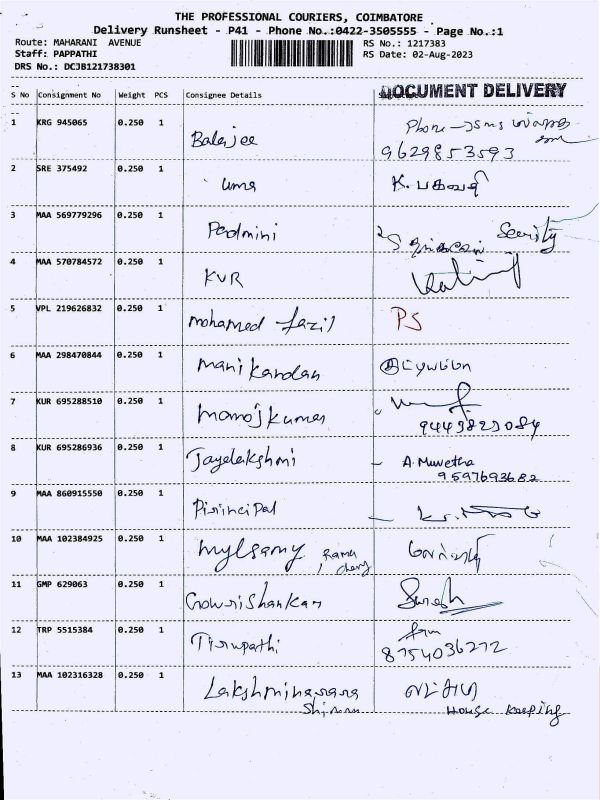 THE PROFESSIONAL COURIERS, COIMBATORE
Delivery Runsheet - P41 - Phone No.:0422-3505555 - Page No.:1
Route: MAHARANI AVENUE
RS No.: 1217383
Staff: PAPPATHI
RS Date: 02-Aug-2023
DRS No.: DCJB121738301
DOCUMENT DELIVERY
S No Consignment No Weight PCS Consignee Details
1 KRG 945065 0.250 1 Balajee Phone
9629853593
2 SRE 375492 0.250 1 Uma K. பகவதி
3 MAA 569779296 0.250 1 Padmini Security
4 MAA 570784572 0.250 1 KVR
5 VPL 219626832 0.250 1 mohamed fazil PS
6 MAA 298470844 0.250 1 manikandan
7 KUR 695288510 0.250 1 manojkumar
9443823084
8 KUR 695286936 0.250 1 Jayalakshmi - A. Muvetha
9597693682
9 MAA 860915550 0.250 1 Pirincipal
10 MAA 102384925 0.250 1 mylsamy Ramu
11 GMP 629063 0.250 1 Gowrishankar Suresh
12 TRP 5515384 0.250 1 Tirupathi
8754036272
13 MAA 102316328 0.250 1 Lakshminarana
House keeping